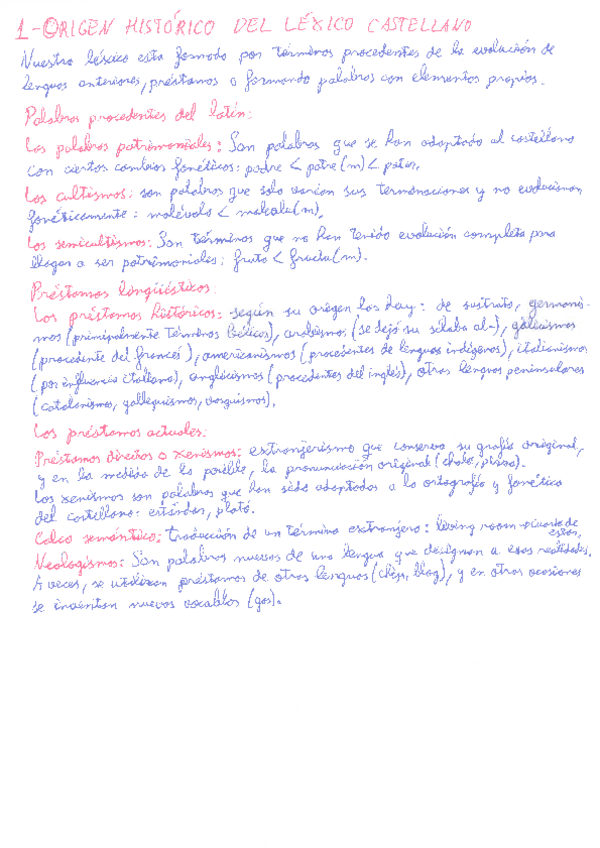 1-ORIGEN HISTÓRICO DEL LÉXICO CASTELLANO
Nuestro léxico esta formado por términos procedentes de la evolución de
lenguas anteriores, préstamos o formando palabras con elementos propios.
Palabras procedentes del latín:
Las palabras patrimoniales: Son palabras que se han adaptado al castellano
con ciertos cambios fonéticos: padre < patre(m) < pater.
Los cultismos: son palabras que solo varian sus terminaciones y no evolucionan
fonéticamente:
Los semicultismos: Son términos que no han tenido evolución completa para
llegar a ser patrimoniales: fruto < fructu(m).
Préstamos lingüísticos:
Los préstamos históricos: según su origen los hay: de sustrato, germanis-
mos (principalmente términos bélicos), arabismos (se dejó su sílaba al-), galicismos
(procedente del francés), americanismos (procedentes de lenguas indígenas), italianismos
(por influencia italiana), anglicismos (procedentes del inglés), otras lenguas peninsulares
(catalanismos, galleguismos, vasquismos).
Los préstamos actuales:
Préstamos directos o xenismos: extranjerismo que conserva su grafía original,
y en la medida de lo posible, la pronunciación original (chalet, pizza).
Los xenismos son palabras que han sido adaptados a la ortografía y fonética
del castellano: estándar, plató.
Calco semántico: traducción de un término extranjero: living room = cuarto de
estar.
Neologismos: Son palabras nuevas de una lengua que designan a esas realidades.
A veces, se utilizan préstamos de otras lenguas (chip, blog), y en otras ocasiones
se inventan nuevos vocablos (gas).